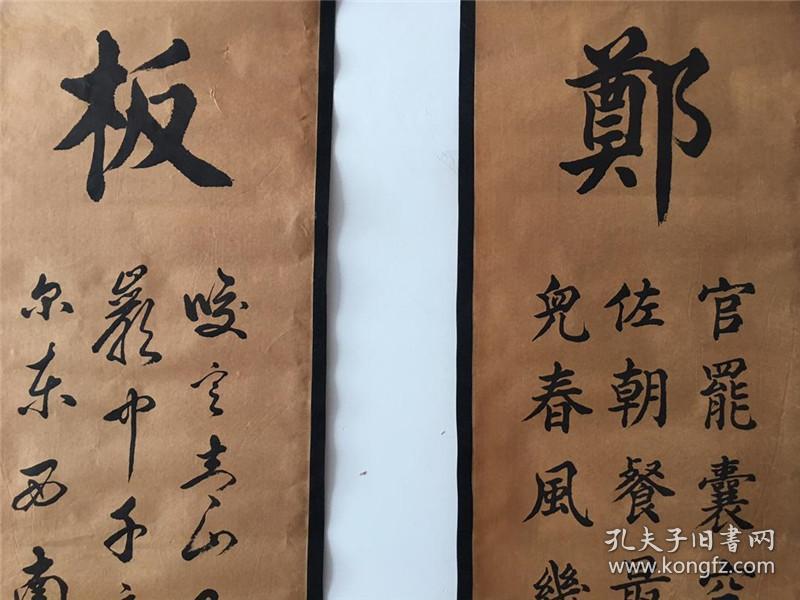 鄭
官罷囊空
佐朝餐最
兒春風幾
板
咬定青山
巖中千
尔東西南
孔夫子旧書网
www.kongfz.com